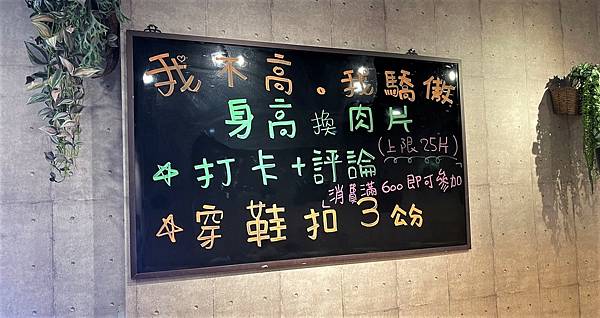 我不高。我驕傲
身高換肉片
(上限25片)
☆打卡+評論
消費滿600即可參加
☆穿鞋扣3公分